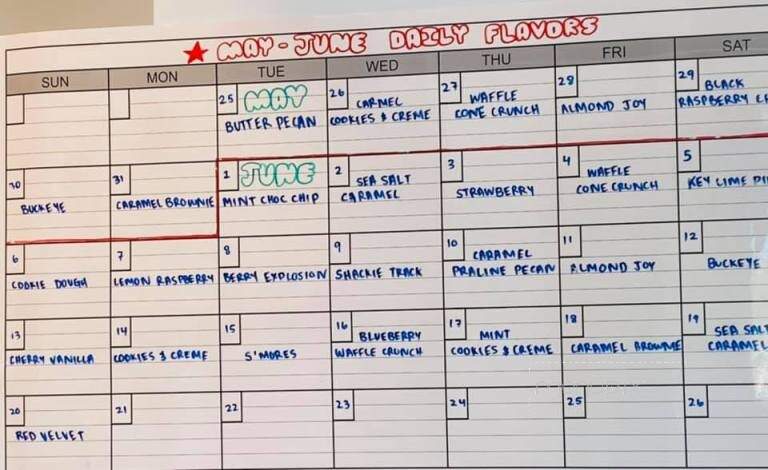 ★ MAY - JUNE DAILY FLAVORS
SUN MON TUE WED THU FRI SAT
25 MAY
BUTTER PECAN
26 CARMEL
COOKIES & CREME
27 WAFFLE
CONE CRUNCH
28
ALMOND JOY
29 BLACK
RASPBERRY
30
BUCKEYE
31
CARAMEL BROWNIE
1 JUNE
MINT CHOC CHIP
2 SEA SALT
CARAMEL
3
STRAWBERRY
4 WAFFLE
CONE CRUNCH
5
KEY LIME
6
COOKIE DOUGH
7
LEMON RASPBERRY
8
BERRY EXPLOSION
9
SHACKIE TRACK
10 CARAMEL
PRALINE PECAN
11
ALMOND JOY
12
BUCKEYE
13
CHERRY VANILLA
14
COOKIES & CREME
15
S'MORES
16 BLUEBERRY
WAFFLE CRUNCH
17 MINT
COOKIES & CREME
18
CARAMEL BROWNIE
19 SEA SALT
CARAMEL
20
RED VELVET
21
22
23
24
25
26